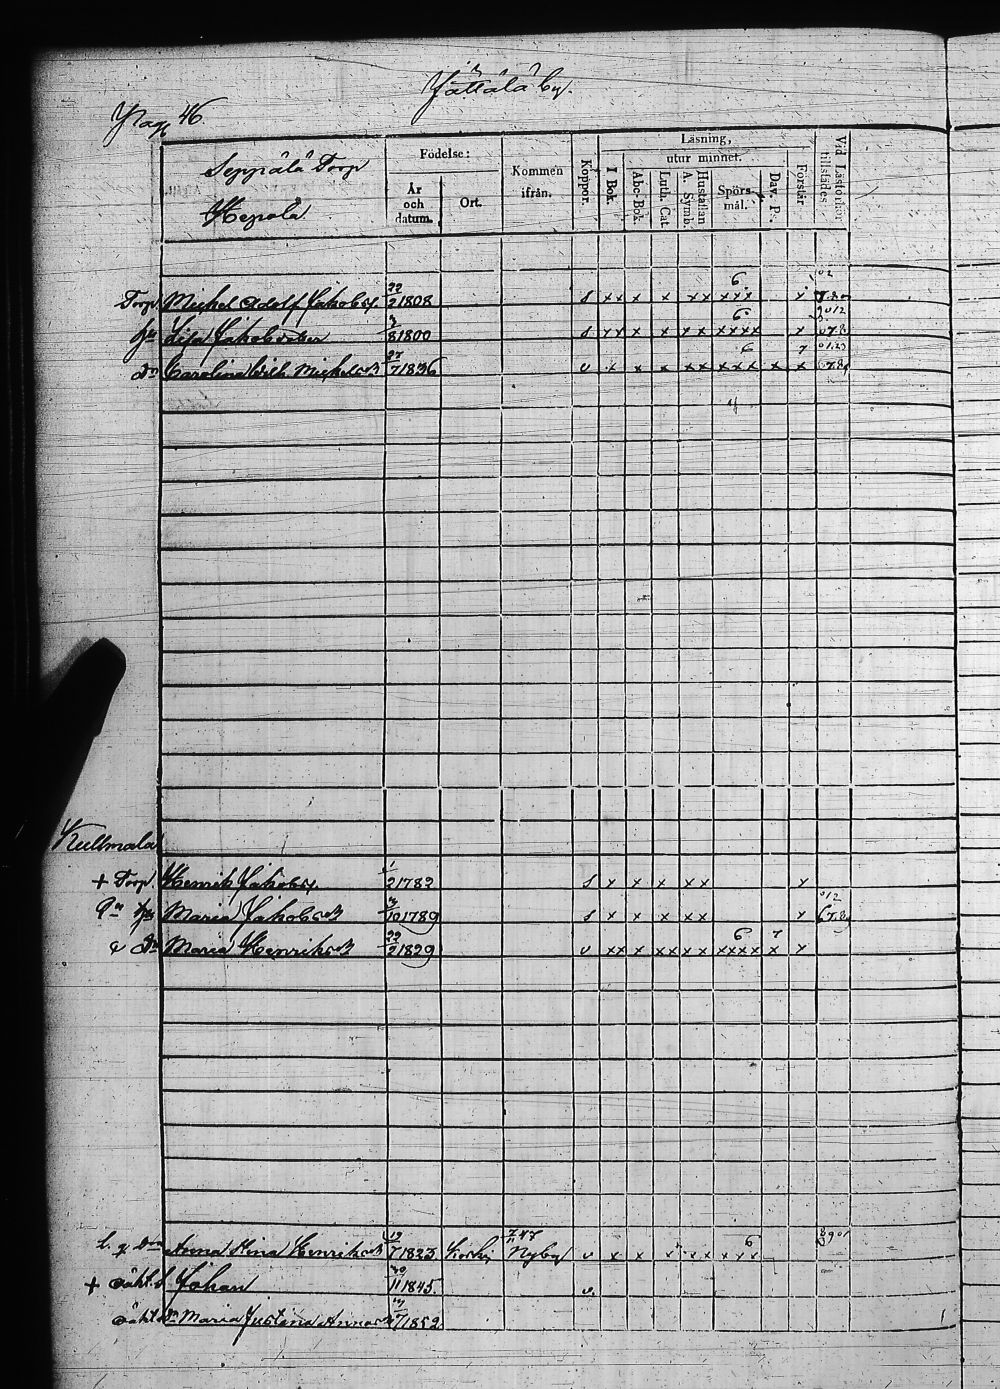 Jättälä by.
Pag 46
Seppälä Torp
Hepola
Födelse:
År och datum.
Ort.
Kommen ifrån.
Koppor.
Läsning,
utur minnet.
I Bok.
Abc-Bok.
Luth. Cat.
Hustaflan A. Symb.
Spörsmål.
Dav. P.
Förstår
Vid Läsförhör tillstädes
6
Torp. Michel Adolf Jakobss. 22/2 1808 s xx x x xx xxx x
6
hu Lisa Jakobsdoter 8 1800 s xx x x xx xxxx x
6 7
Dr Carolina Wilh. Michelsd 27/7 1836 v x x x xx xxx x x
Kullmala
+ Torp. Henrik Jakobss. 1/2 1782 s x x x xx x
Maria Jakobsd 10 1789 s x x x xx x
6 7
Dr Maria Henriksd 22/2 1829 v xx x xx xx xxxx x x
6
Anna Stina Henriksd 19/7 1823 Koski Nyby v x x x xx xxx
+ oäkt. S Johan 30/11 1845. v.
oäkt. Dr Maria Justina Annasd 7 1852